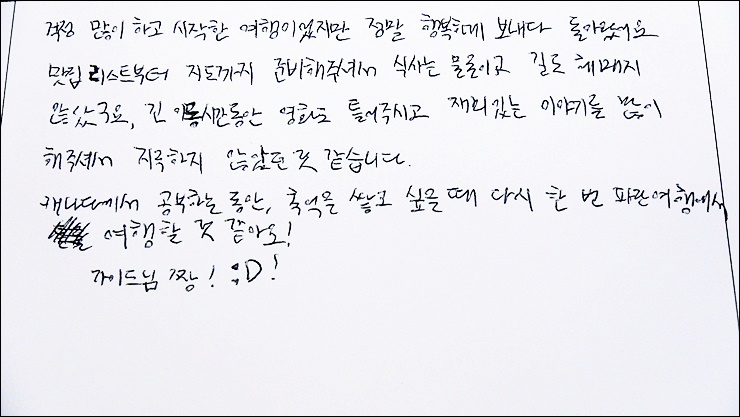 걱정 많이 하고 시작한 여행이었지만 정말 행복하게 보내다 돌아왔어요
맛집 리스트부터 지도까지 준비해주셔서 식사는 물론이고 길도 헤매지
않았구요, 긴 이동시간동안 영화도 틀어주시고 재미있는 이야기를 많이
해주셔서 지루하지 않았던 것 같습니다.
캐나다에서 공부하는 동안, 추억을 쌓고 싶을때 다시 한 번 파란여행에서
여행할 것 같아요!
가이드님 짱! :D!